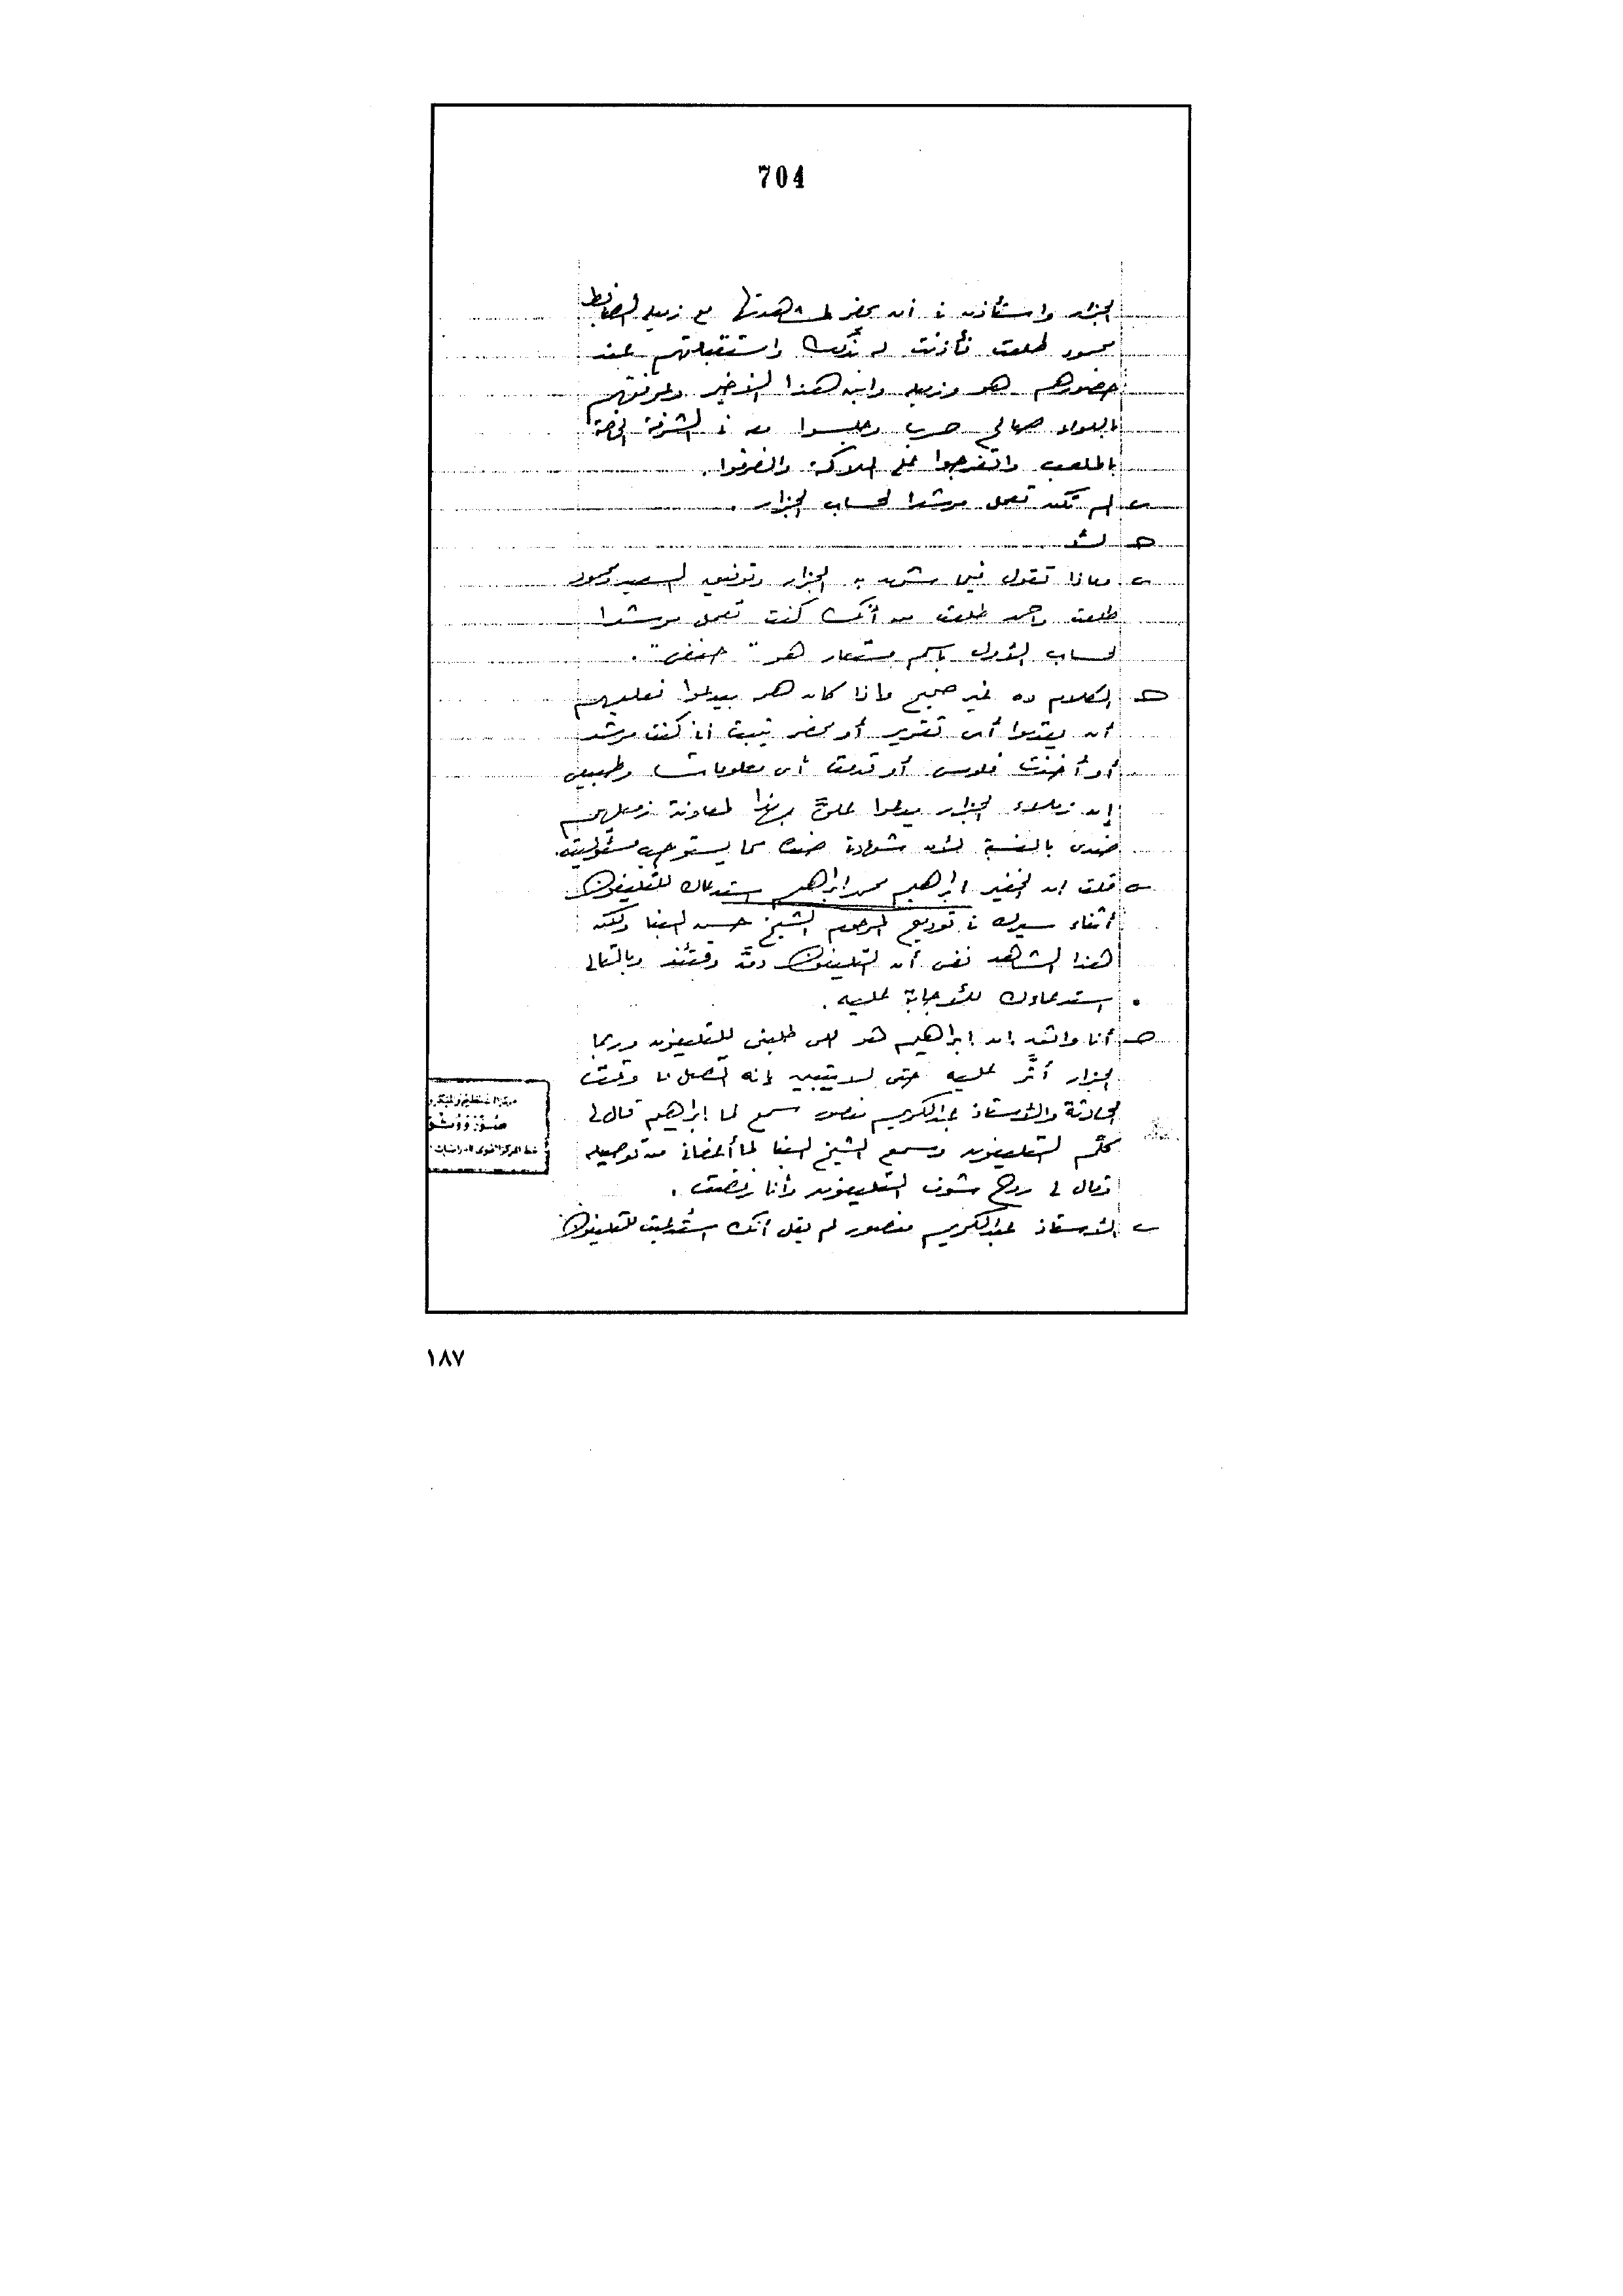 704
الجزار واستأذن فى أن يحضر لمشاهدتها مع زميله الضابط
محمود طلعت فأذنت له بذلك واستقبلتهم عند
حضورهم هو وزميله وابن هذا الأخير وعرفتهم
باللواء صالح حرب وجلسوا معه فى الشرفة الخاصة
بالملعب واتفرجوا على الملاكمة وانصرفوا .
س الم تكن تعمل مرشدا لحساب الجزار .
حـ لأ
س وماذا تقول فيما شهد به الجزار وتوفيق السعيد ومحمود
طلعت واحمد طلعت من أنك كنت تعمل مرشدا
لحساب الأول باسم مستعار هو " حنفى " .
حـ الكلام ده غير صحيح واذا كان هم بيدعوا فعليهم
أن يقدموا أى تقرير أو محضر يثبت انى كنت مرشد
أو أخذت فلوس أو قدمت أى معلومات وطبيعى
إن زملاء الجزار يدعوا علىَّ بهذا لمعاونة زميلهم
ضدى بالنسبة لأن شهادتى ضده مما يستوجب مسئوليته .
س قلت ان الخفير ابراهيم محمد ابراهيم استدعاك للتليفون
أثناء سيرك فى توديع المرحوم الشيخ حسن البنا ولكن
هذا الشاهد نفى أن التليفون دقَّ وقتئذ وبالتالى
استدعاءك للأجابة عليه .
حـ أنا واثق ان ابراهيم هو اللى طلبنى للتليفون وربما
الجزار أثَّر عليه حتى لا يتبين بانه اتصل بى وتمت
محادثة والأستاذ عبد الكريم منصور سمع لما ابراهيم قال لى
كلّم التليفون وسمع الشيخ البنا لما أعفانى من توصيله
وقال لى روح شوف التليفون وأنا رفضت .
س الأستاذ عبد الكريم منصور لم يقل أنك استُدعيت للتليفون
١٨٧